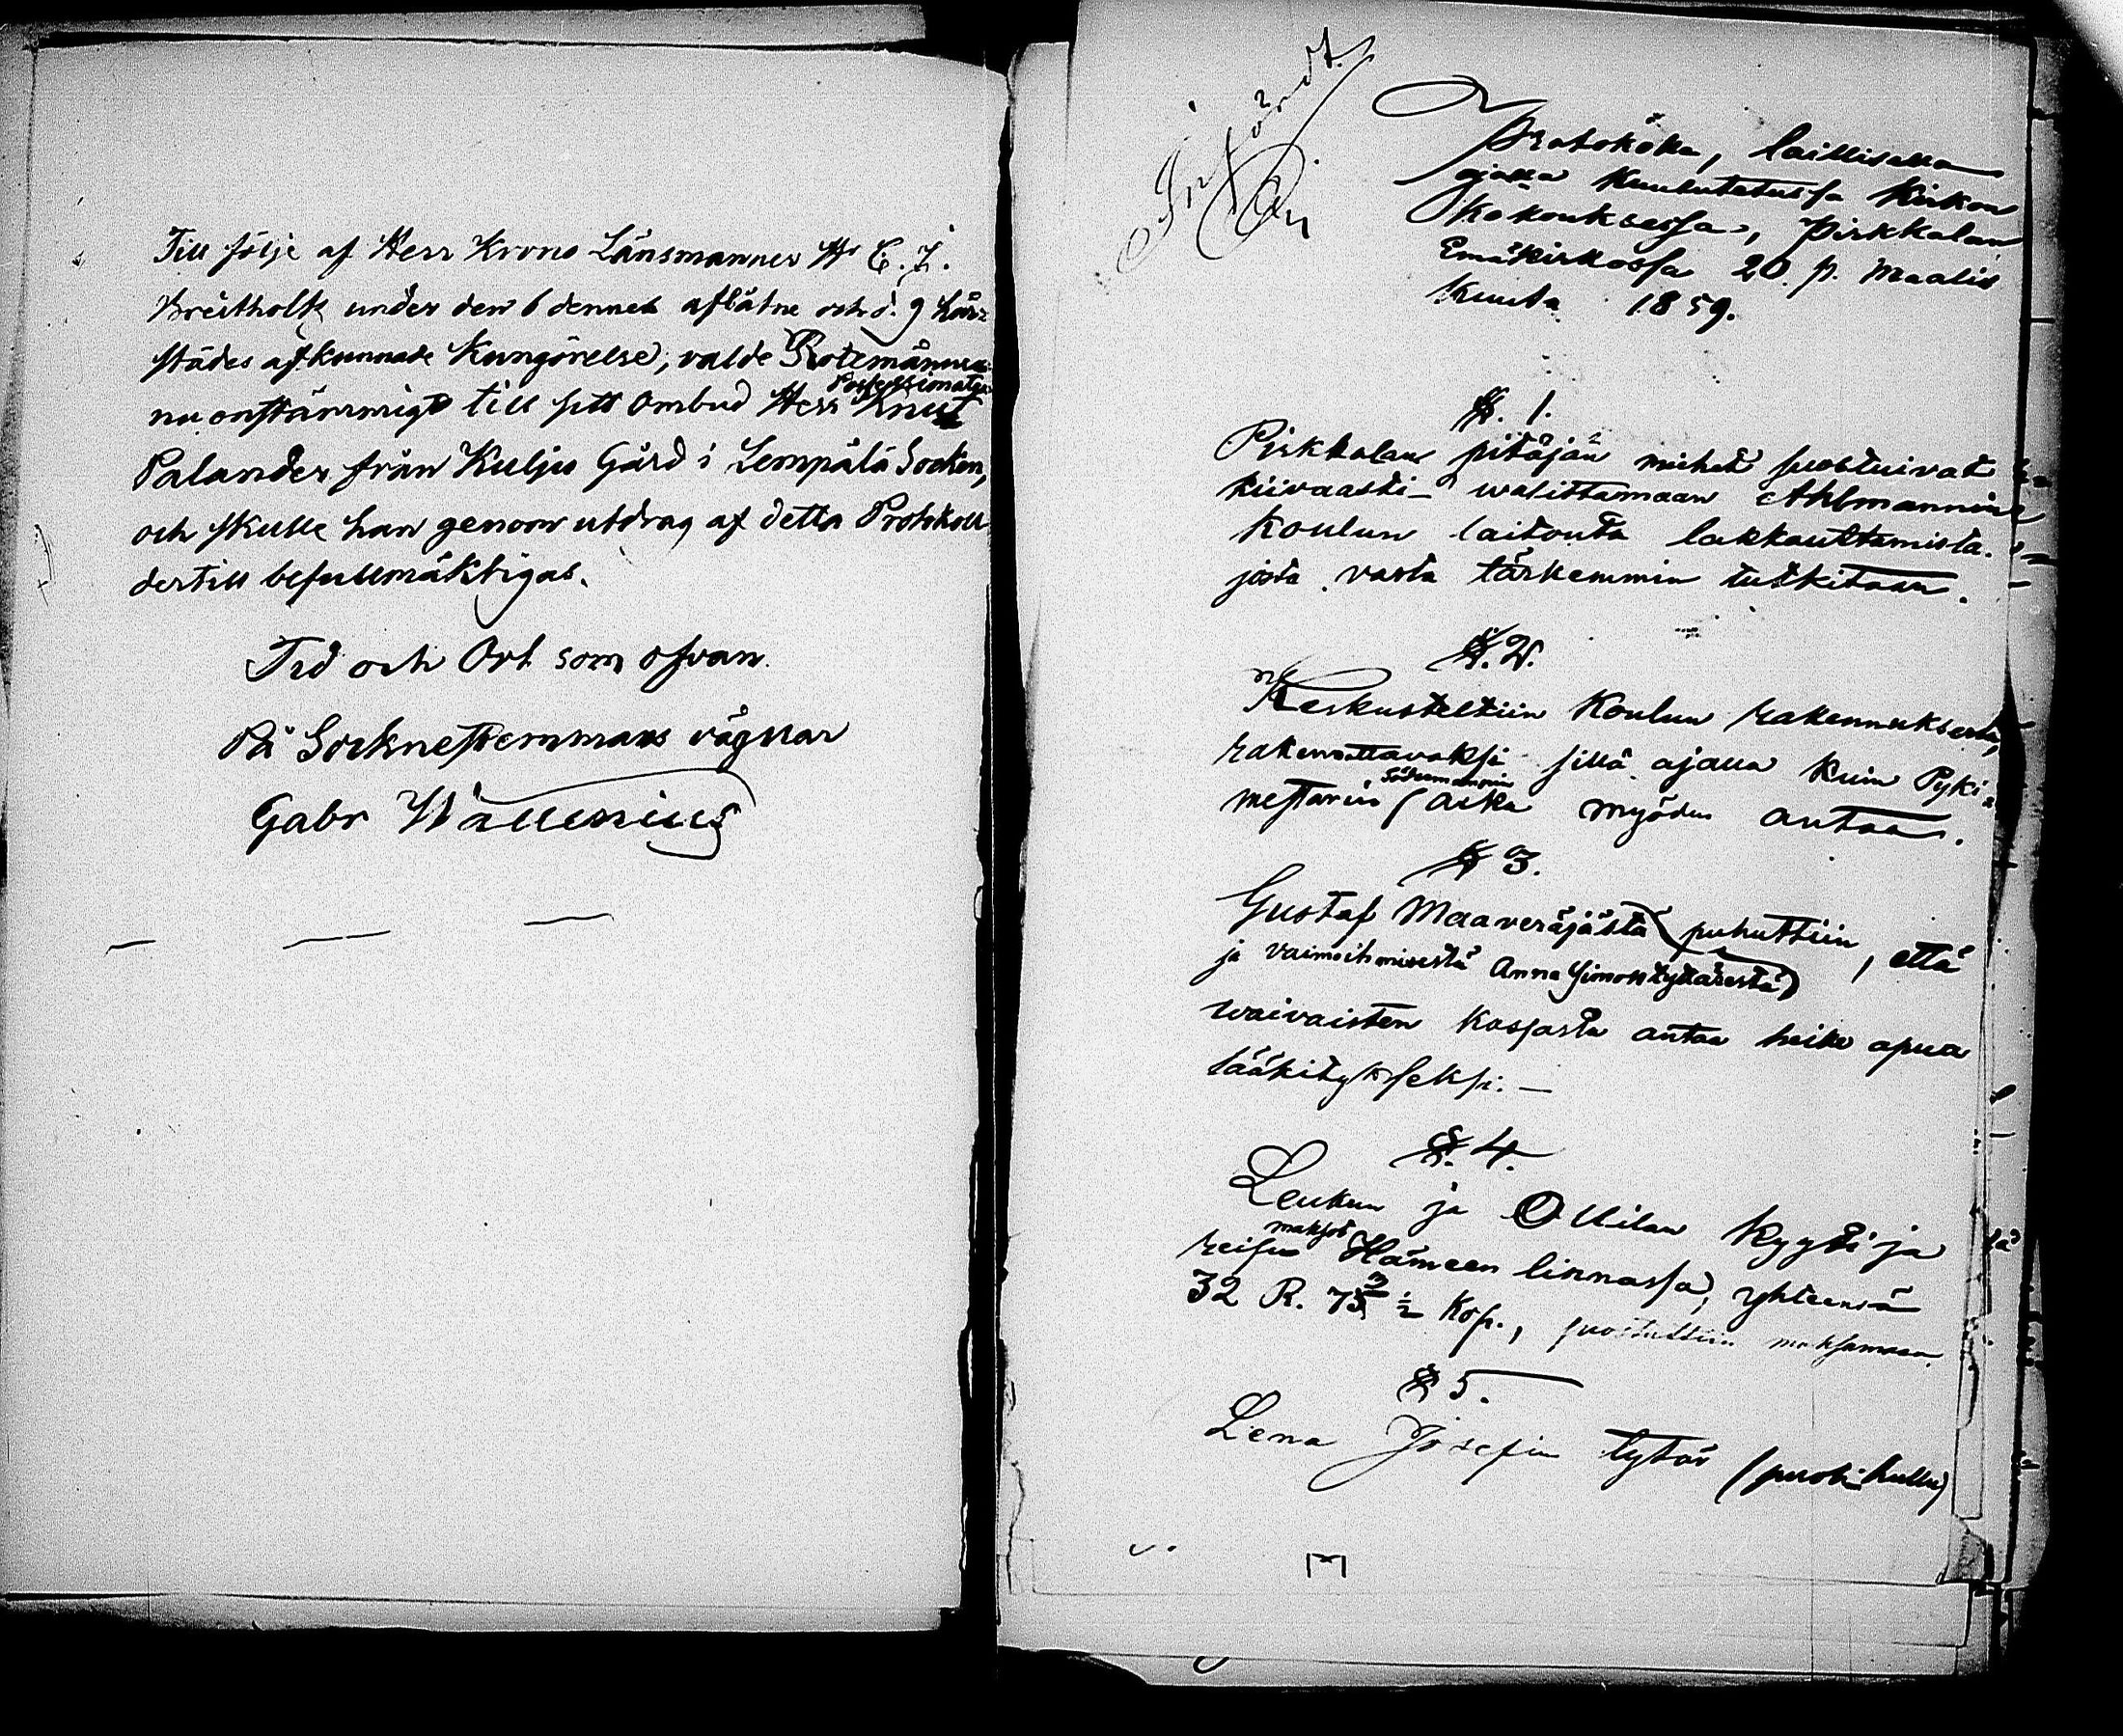 Till följe af Herr Krono Länsmannen Hr C. J.
Breitholtz under den 6 dennes aflåtne och d. 9 här-
städes afkunnade Kungörelse, valde Rotemännen
Possessionaten
nu enstämmigt till sitt Ombud Herr Knut
Palander från Kuljus Gård i Lempälä Socken,
och skulle han genom utdrag af detta Protokoll
dertill befullmäktigas.
Tid och Ort som ofvan.
På Sockne stemmans vägnar
Gabr Wallenius
Infördt.
Protokoka, laillisella
ajalla kuulutetussa Kirkon
Kokouksessa, Pirkkalan
Emäkirkossa 20. p. Maalis
Kuuta 1859.
§. 1.
Pirkkalan pitäjän miehet suostuivat
kiivaasti walittamaan Ahlmannin
Koulun laitonta lakkauttamista.
josta vasta tärkemmin tutkitaan.
§. 2.
Keskusteltiin Koulun rakennuksesta,
rakennettavaksi sillä ajalla kuin Pyki-
Södermannin
mestarin aika myöden antaa.
§ 3.
Gustaf Maaveräjästä puhuttiin, että
ja vaimoihmisestä Anna Simontyttärestä
waivaisten kassasta antaa heille apua
lääkitykseksi. —
§. 4.
Leukun ja Ollilan kyyti ja
maksot
reisu Hämeen linnassa, yhteensä
32 R. 73 ½ Kop., suostuttiin maksamaan.
§ 5.
Lena Josefin tytär